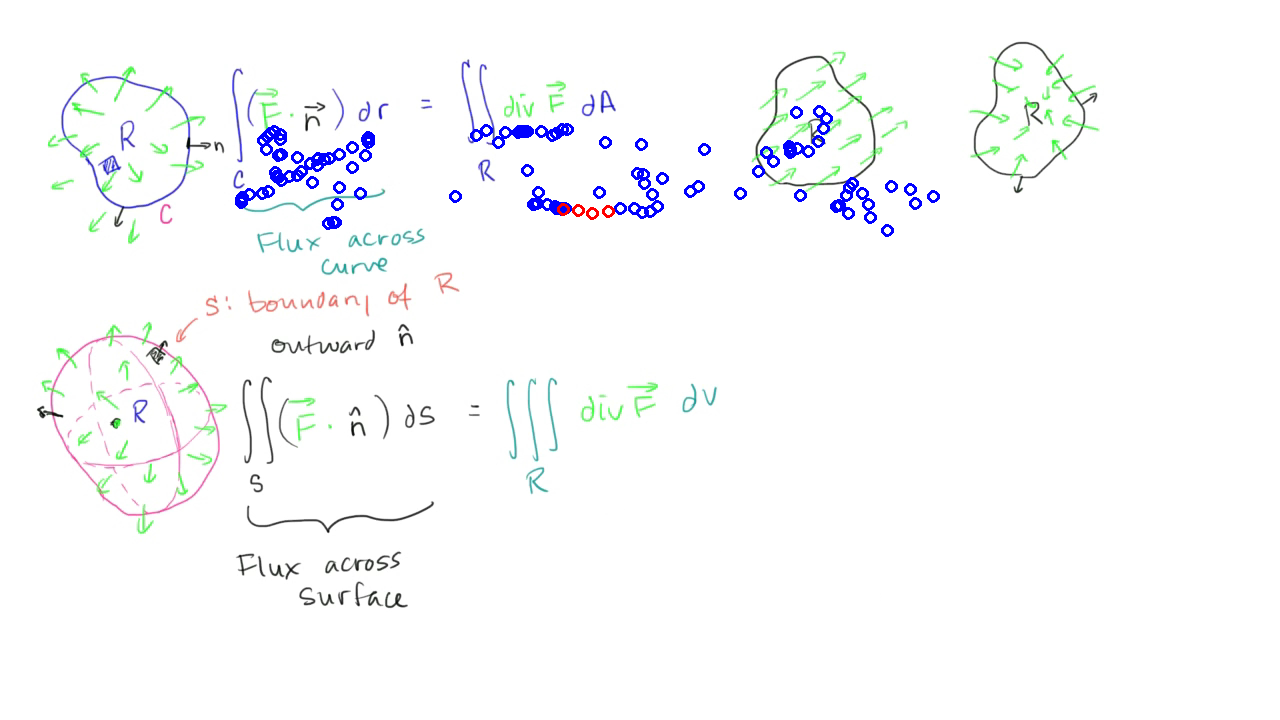 R n C
∫_C (F⃗ · n⃗) dr = ∬_R div F⃗ dA
R
Flux across
curve
S: boundary of R
outward n̂
R
∬_S (F⃗ · n̂) dS = ∭_R div F⃗ dV
Flux across
surface